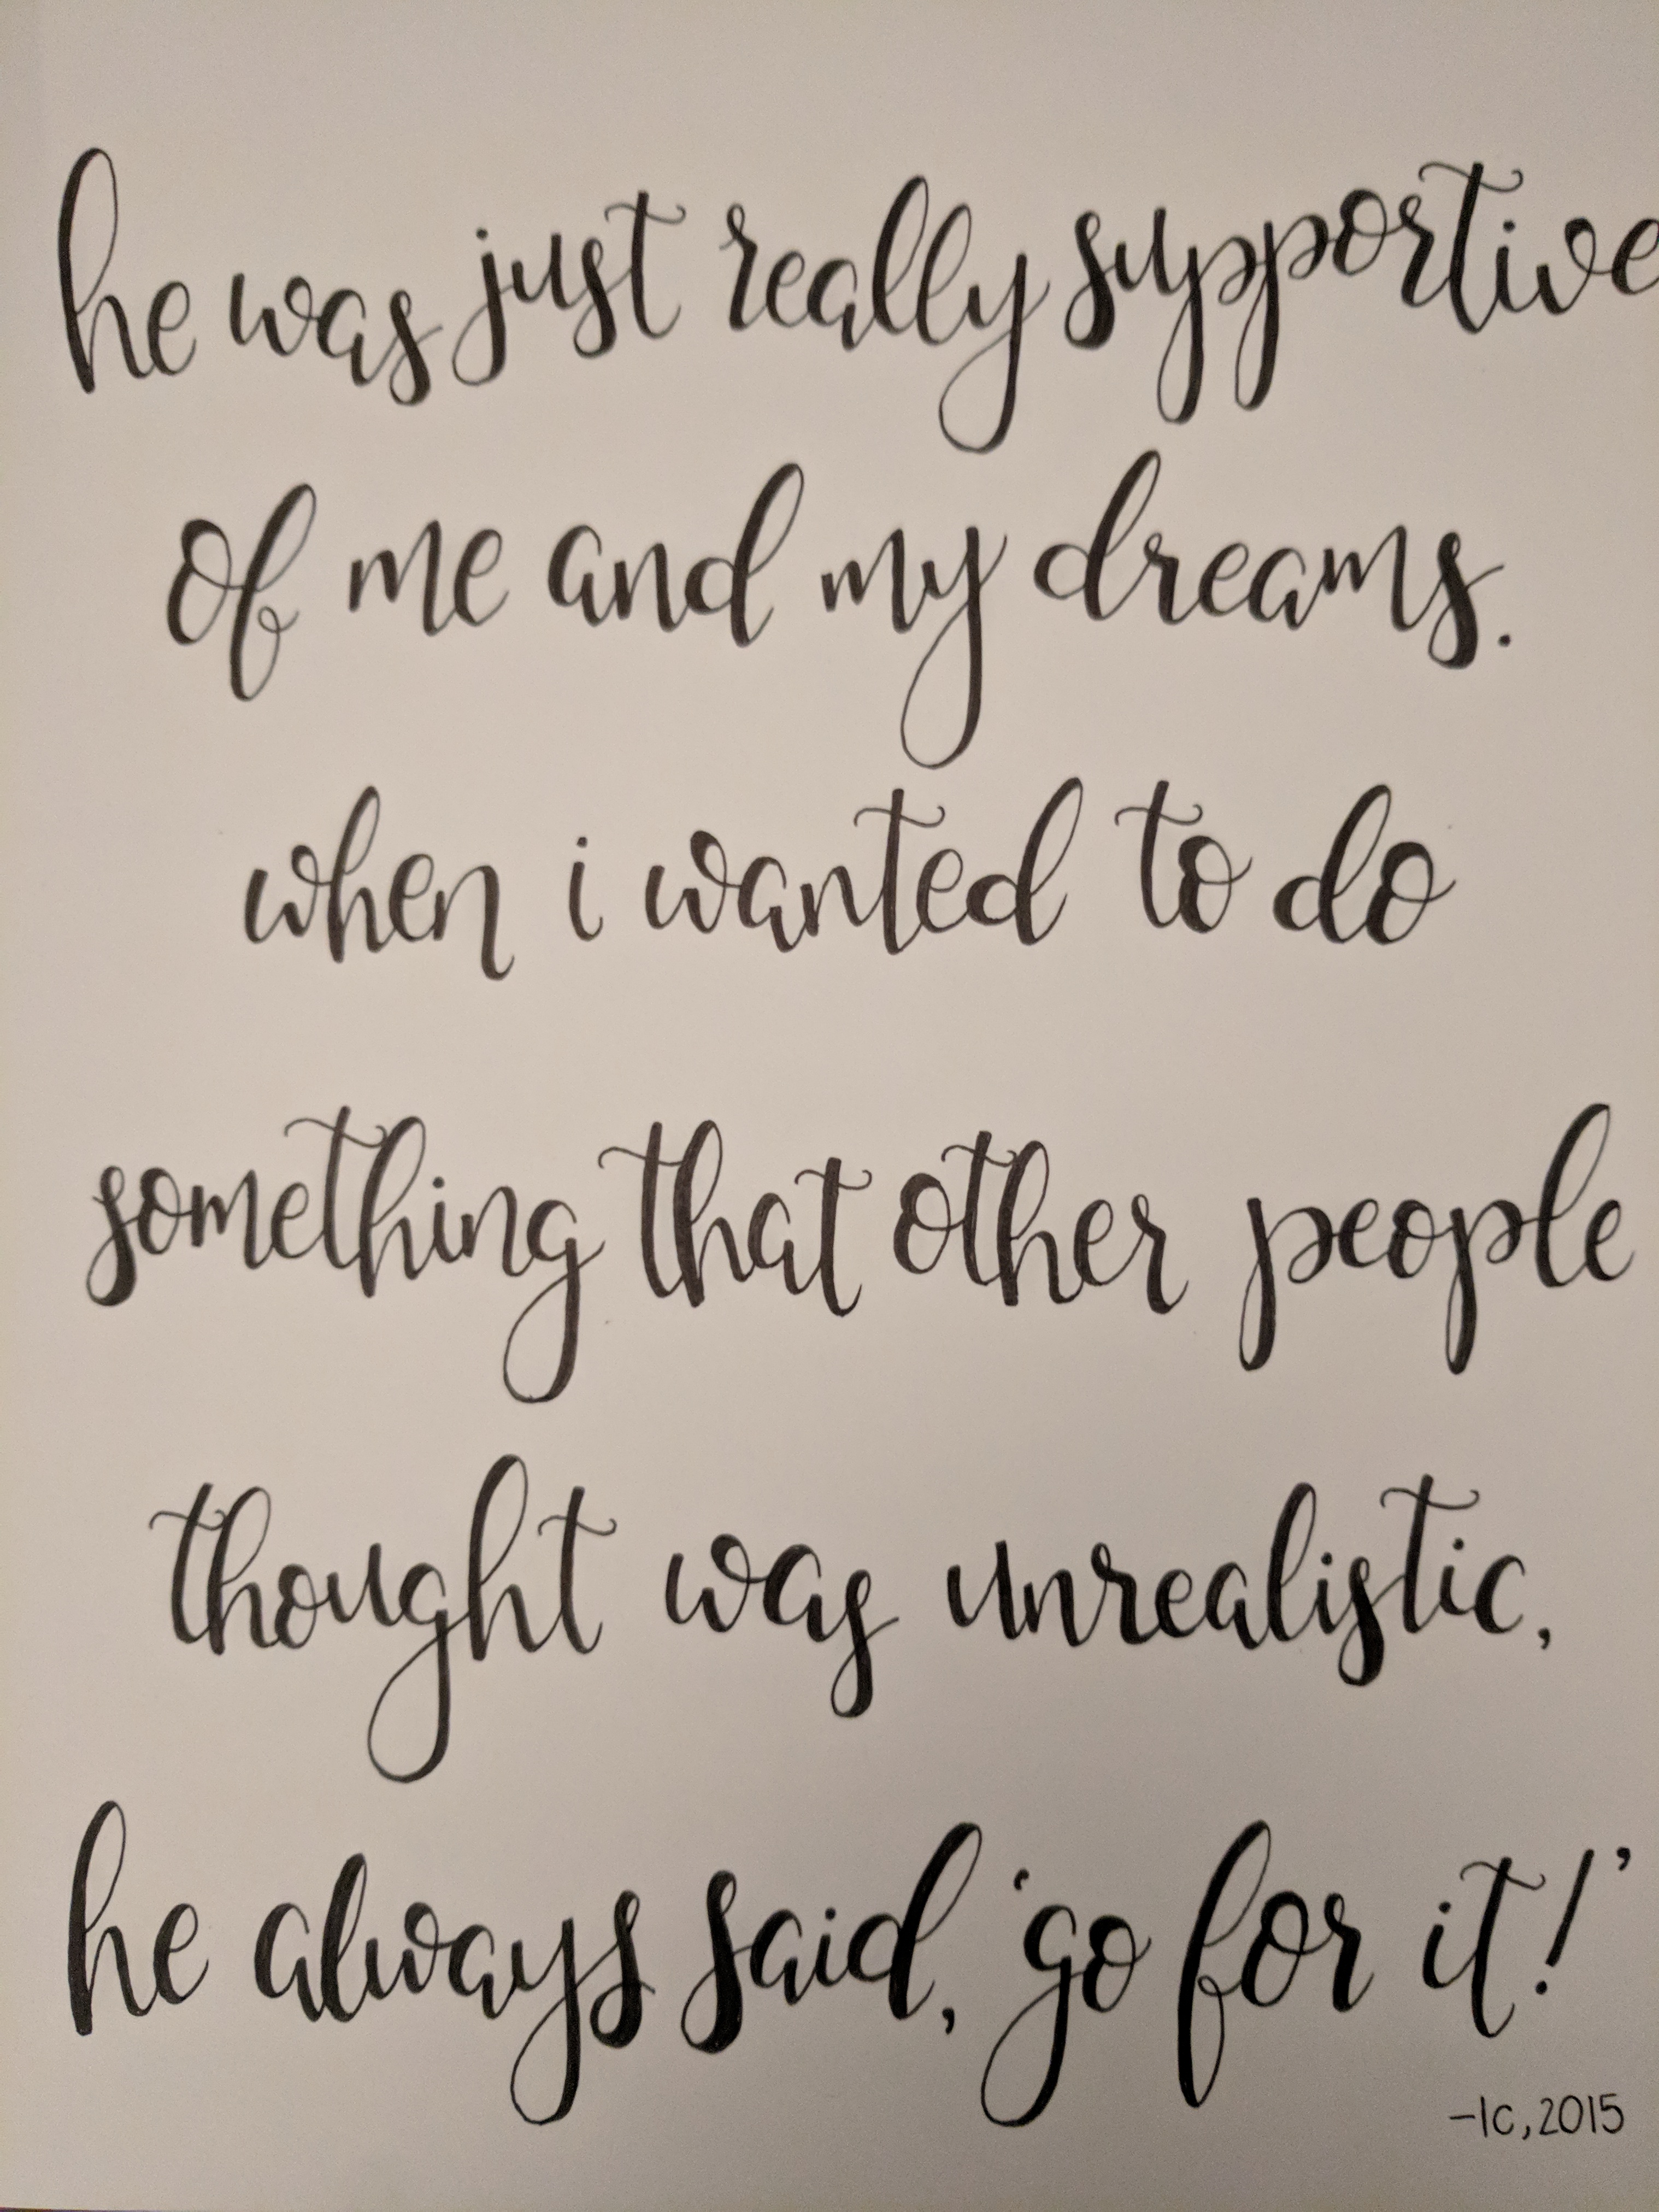 he was just really supportive
of me and my dreams.
when i wanted to do
something that other people
thought was unrealistic,
he always said, 'go for it!'
-lc, 2015